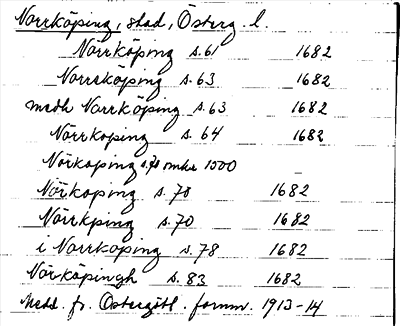 Norrköping, stad, Österg. l.
Nörrköping s. 61 1682
Norreköping s. 63 1682
medh Norrköping s. 63 1682
Nörrkoping s. 64 1682
Nörkoping s. 70 omkr 1500
Nörkoping s. 78 1682
Nörrkping s. 70 1682
i Norrköping s. 78 1682
Nörköpingh s. 83 1682
Medd. fr. Östergötl. fornm. 1913-14